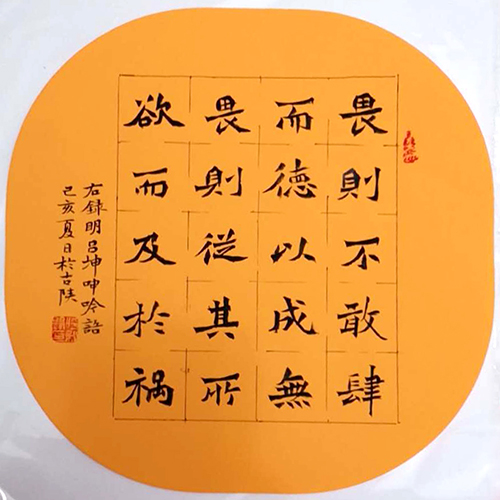 畏則不敢肆
而德以成無
畏則從其所
欲而及於祸
右録明吕坤呻吟語
己亥夏日於古陕